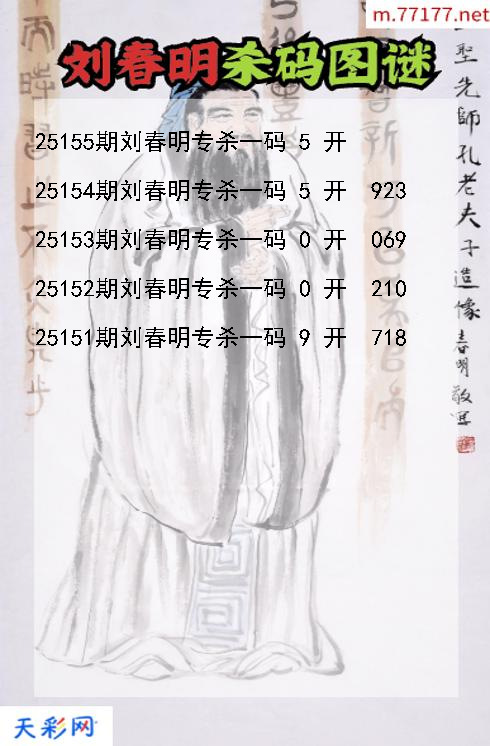 m.77177.net
刘春明杀码图谜
25155期刘春明专杀一码 5 开
25154期刘春明专杀一码 5 开 923
25153期刘春明专杀一码 0 开 069
25152期刘春明专杀一码 0 开 210
25151期刘春明专杀一码 9 开 718
聖先師孔老夫子造像春明敬寫
天彩网